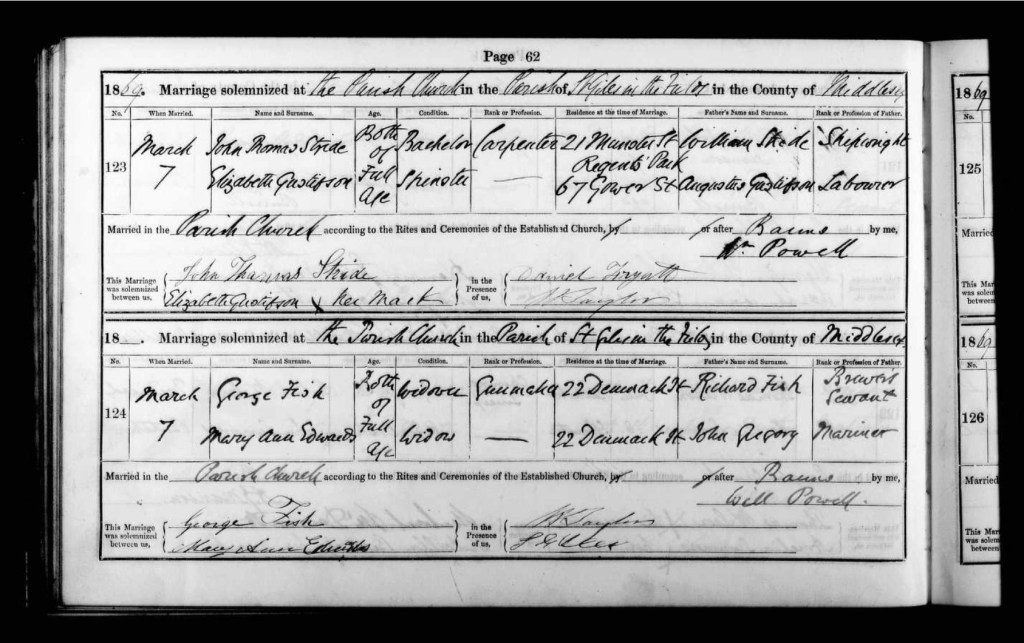 Page 62
1869. Marriage solemnized at the Parish Church in the Parish of St Giles in the Fields in the County of Middlesex
No. When Married. Name and Surname. Age. Condition. Rank or Profession. Residence at the time of Marriage. Father's Name and Surname. Rank or Profession of Father.
123 March 7 John Thomas Stride Both of Full Age Bachelor Carpenter 21 Munster St Regents Park William Stride Shipwright
Elizabeth Gustifson Spinster — 67 Gower St Augustus Gustifson Labourer
Married in the Parish Church according to the Rites and Ceremonies of the Established Church, by or after Banns by me,
Wm Powell
This Marriage was solemnized between us, John Thomas Stride in the Presence of us, Daniel
Elizabeth Gustifson X Her Mark W Taylor
18 . Marriage solemnized at the Parish Church in the Parish of St Giles in the Fields in the County of Middlesex
No. When Married. Name and Surname. Age. Condition. Rank or Profession. Residence at the time of Marriage. Father's Name and Surname. Rank or Profession of Father.
124 March 7 George Fish Both of Full Age Widower Gunmaker 22 Denmark St Richard Fish Brewer's Servant
Mary Ann Edwards Widow — 22 Denmark St John Gregory Mariner
Married in the Parish Church according to the Rites and Ceremonies of the Established Church, by or after Banns by me,
Will Powell.
This Marriage was solemnized between us, George Fish in the Presence of us, W Taylor
Mary Ann Edwards
1869
No.
125
Married
This Mar
was solem
between
1869
No.
126
Married
This Mar
was solem
between